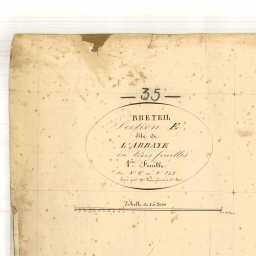 — 35 —
BRETEIL
Section E.
dite de
L'ABBAYE
en trois feuilles
1re Feuille
Echelle de 1 à 2500